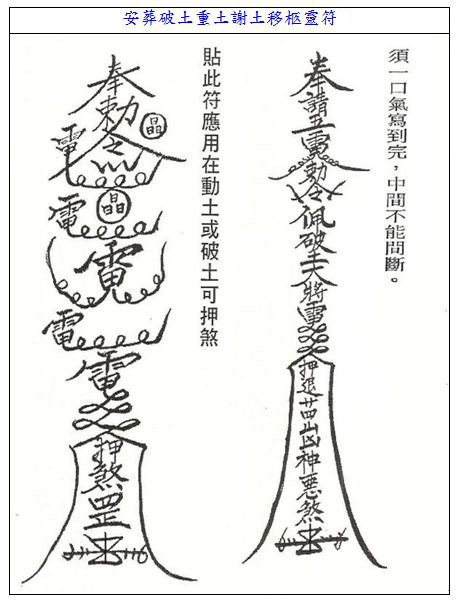 安葬破土重土謝土移柩靈符
須一口氣寫到完，中間不能間斷。
奉請五雷勅令佩破土大將雷
押退廿四山凶神惡煞
貼此符應用在動土或破土可押煞
奉勅令
晶
電
晶
電
電
電
電
押煞罡